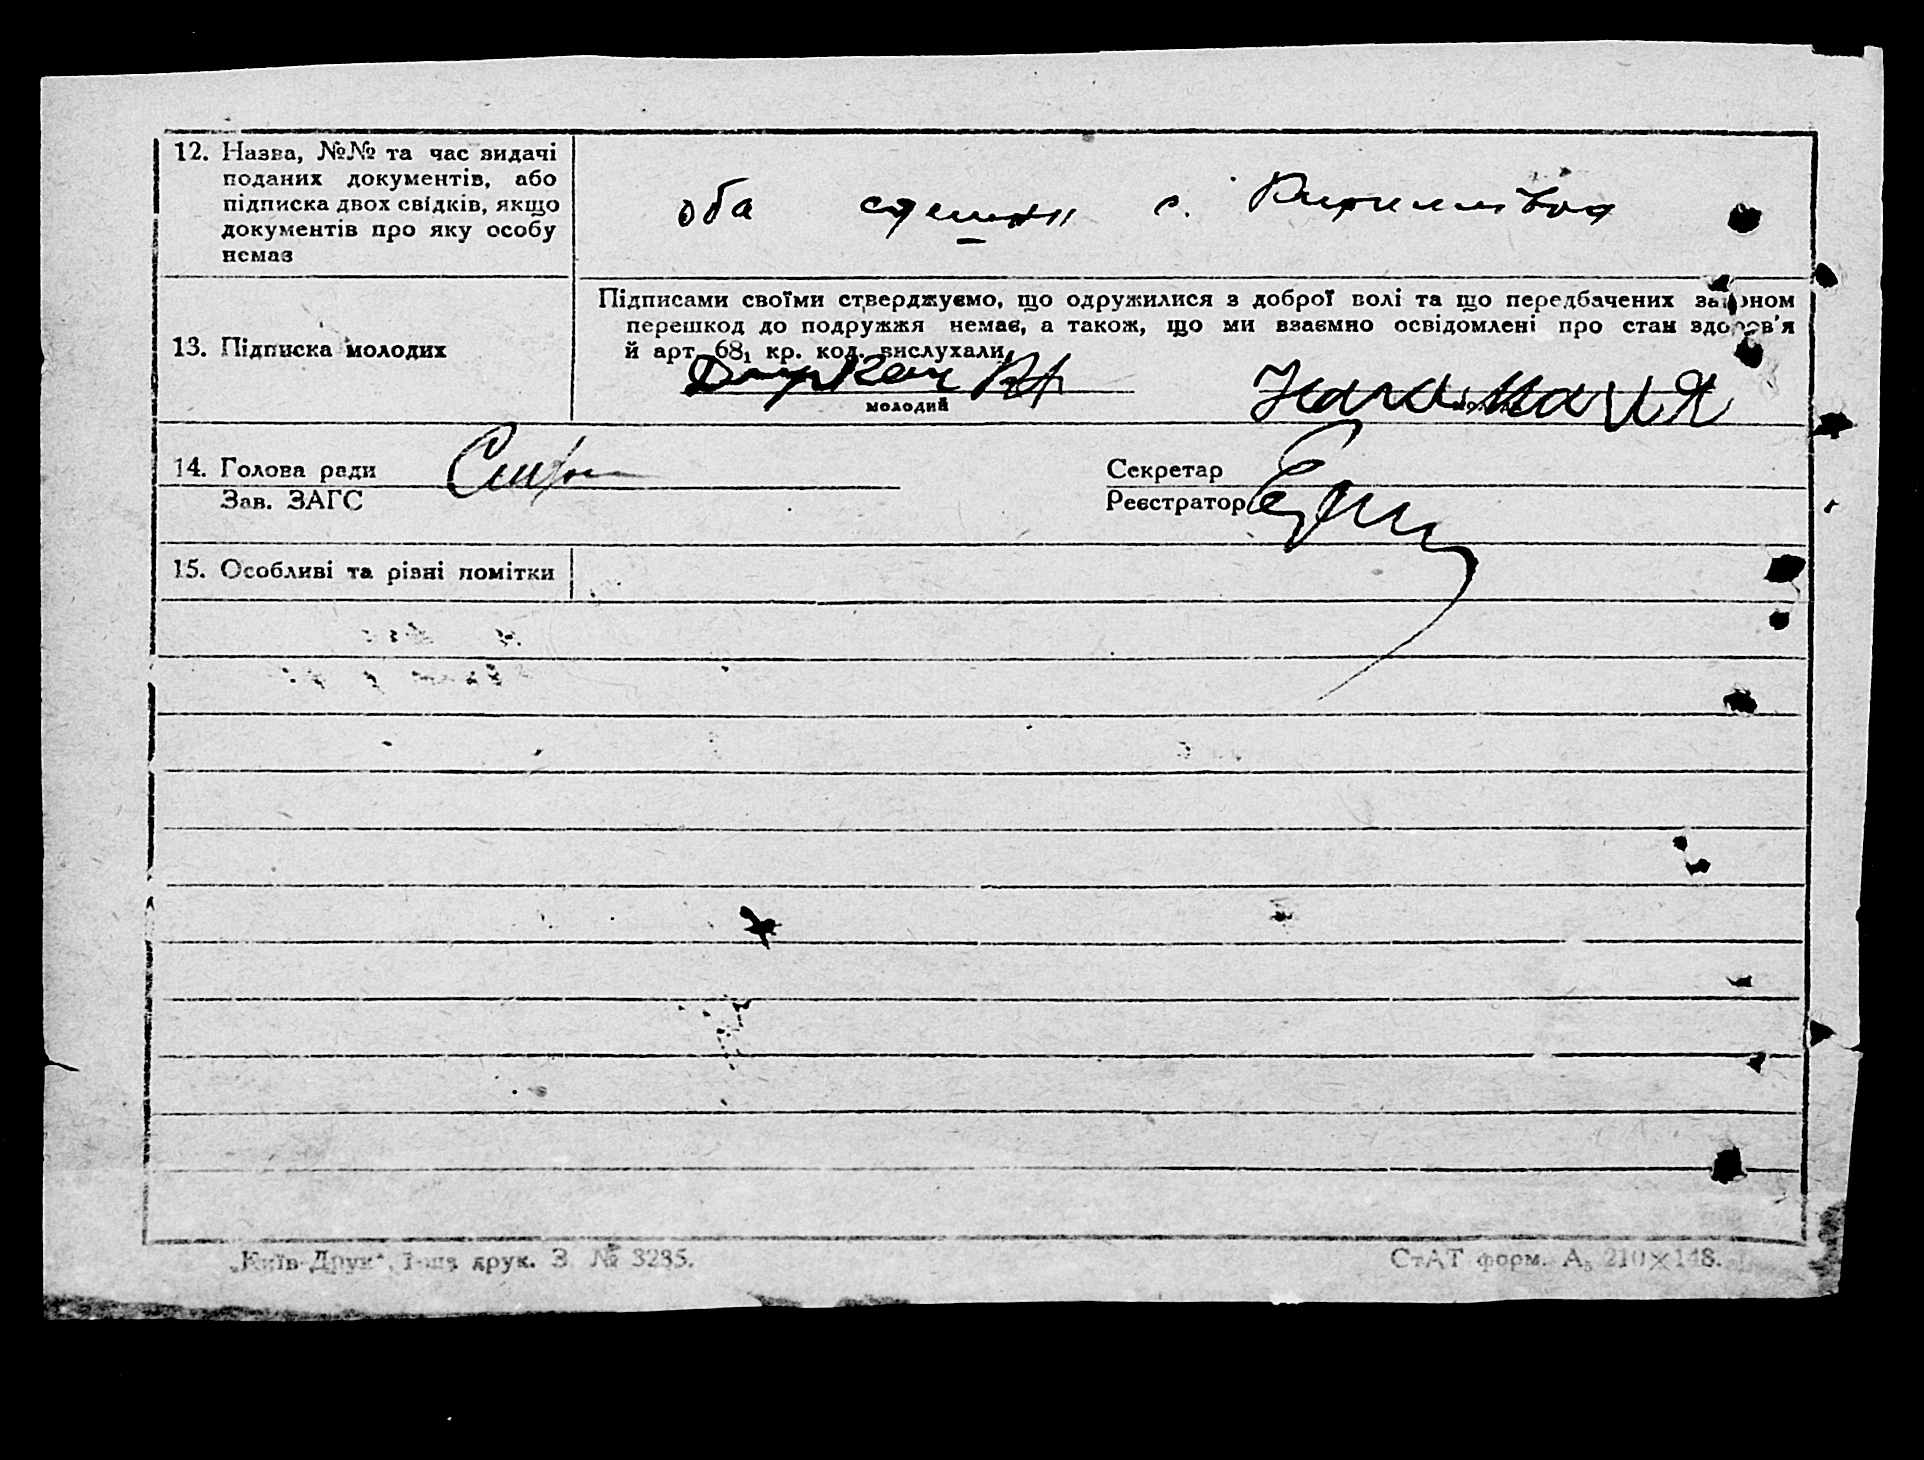 12. Назва, №№ та час видачі
поданих документів, або
підписка двох свідків, якщо
документів про яку особу
немає
оба с.
Підписами своїми стверджуємо, що одружилися з доброї волі та що передбачених законом
перешкод до подружжя немає, а також, що ми взаємно освідомлені про стан здоров'я
й арт. 68₁ кр. код. вислухали.
13. Підписка молодих
молодий
14. Голова ради
Секретар
Зав. ЗАГС
Реєстратор
15. Особливі та різні помітки
„Київ-Друк", друк. З. № 3285.
СтАТ форм. А₅ 210×148.